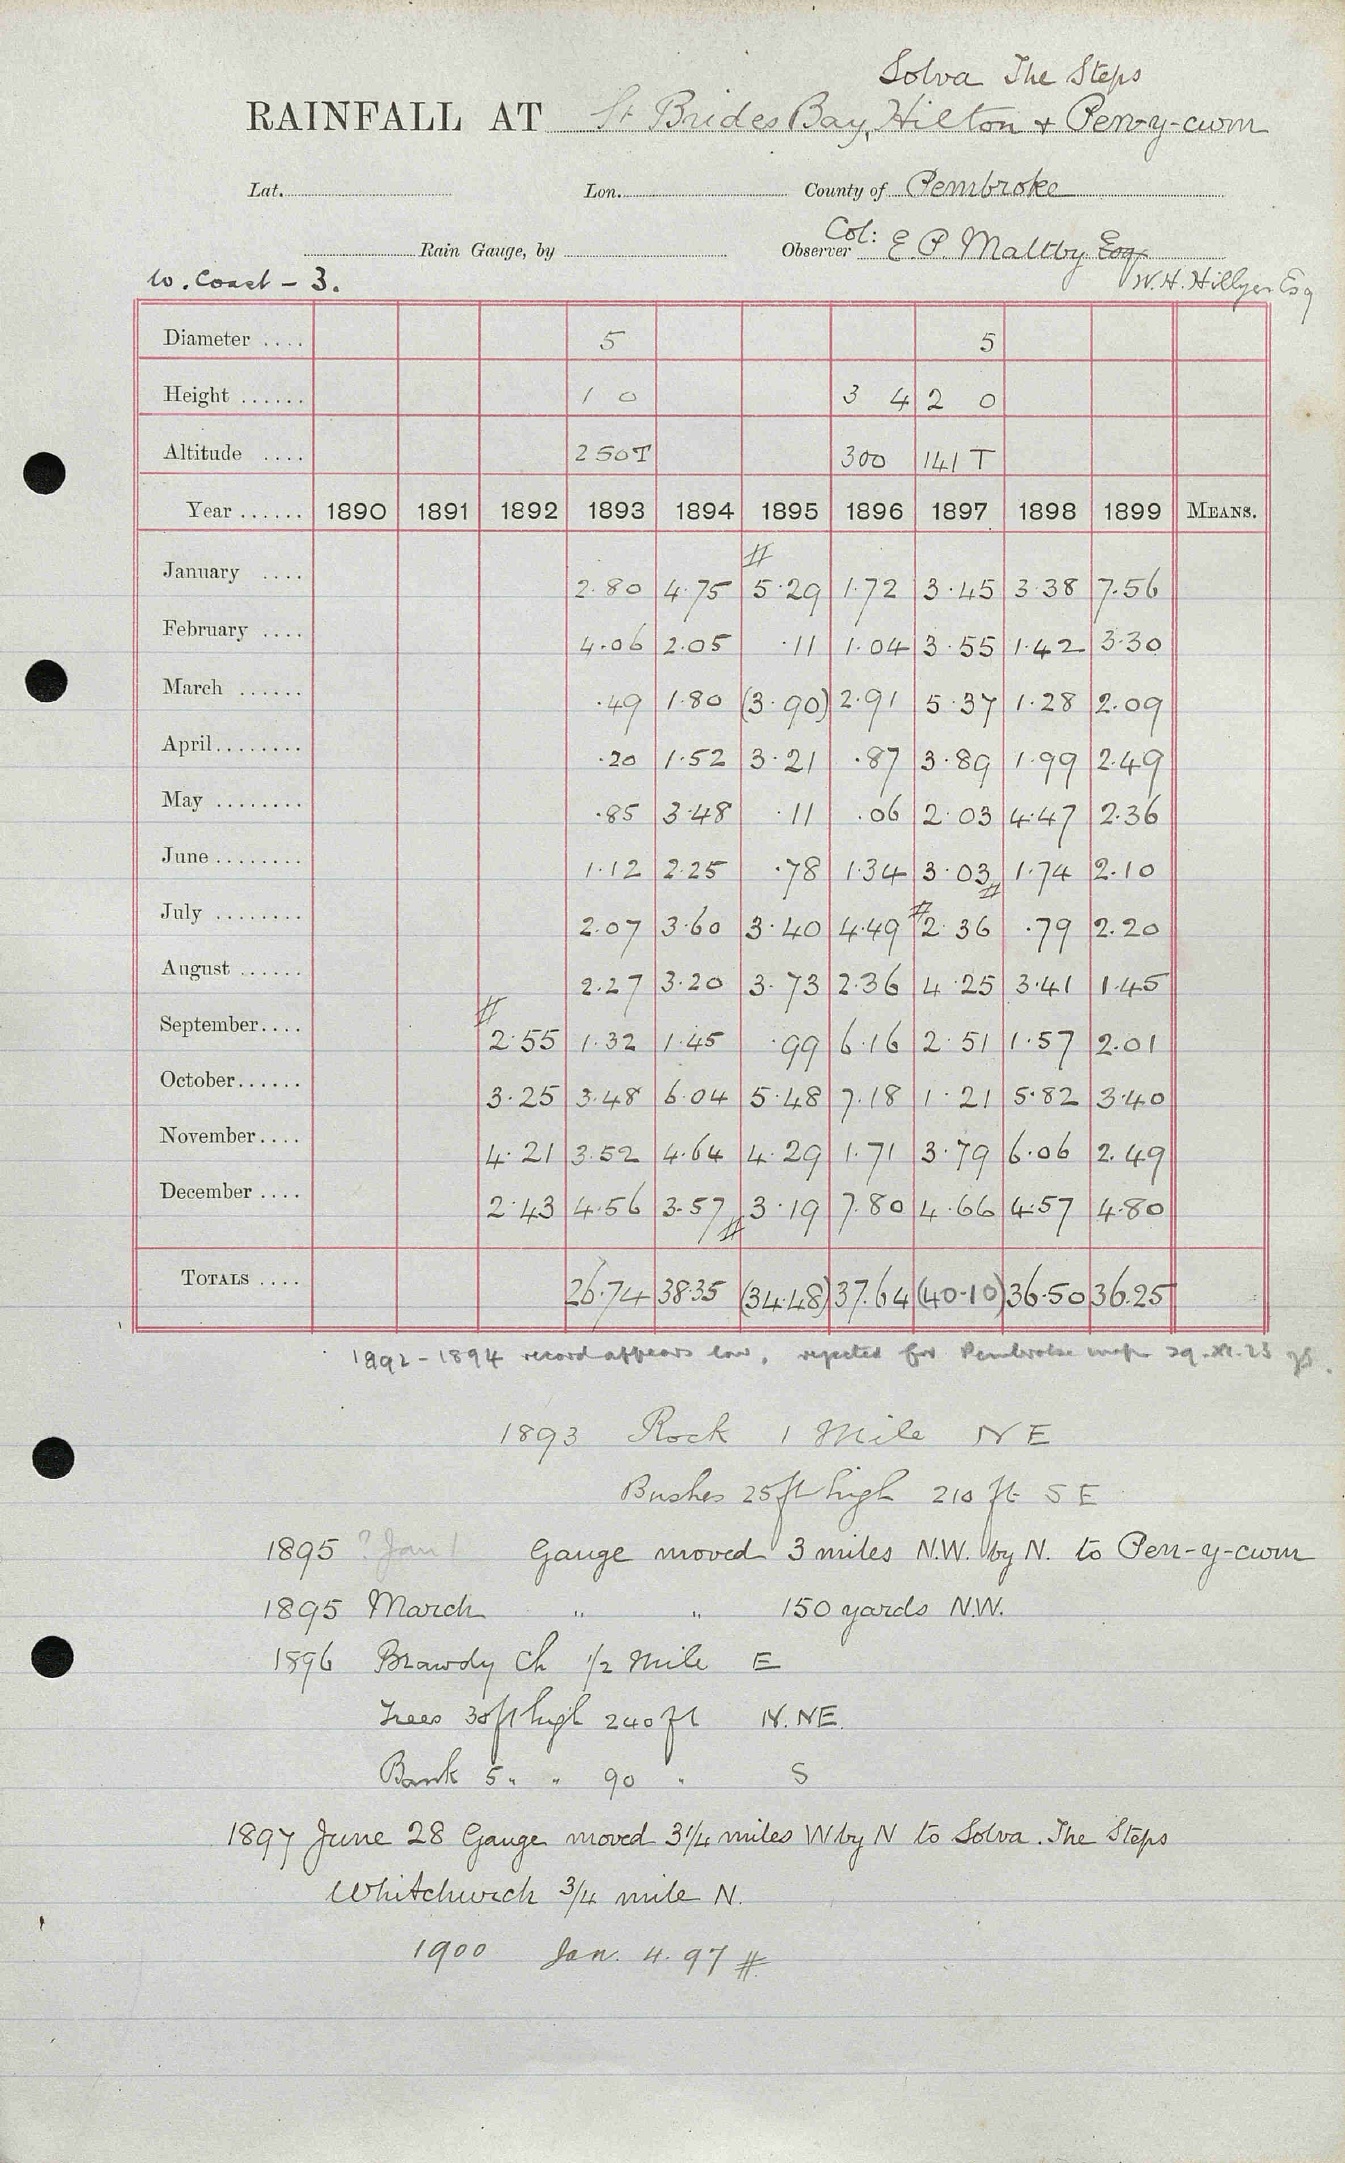 Solva The Steps
RAINFALL AT St Brides Bay, Hilton + Pen-y-cwm
Lat. Lon. County of Pembroke
Rain Gauge, by Observer Col: E P. Maltby Esq
W. Coast - 3. W. H. Hillyer Esq
Diameter .... 5 5
Height ...... 1 0 3 4 2 0
Altitude .... 250T 300 141 T
Year ...... 1890 1891 1892 1893 1894 1895 1896 1897 1898 1899 MEANS.
#
January .... 2.80 4.75 5.29 1.72 3.45 3.38 7.56
February .... 4.06 2.05 .11 1.04 3.55 1.42 3.30
March ...... .49 1.80 (3.90) 2.91 5.37 1.28 2.09
April........ .20 1.52 3.21 .87 3.89 1.99 2.49
May ........ .85 3.48 .11 .06 2.03 4.47 2.36
June........ 1.12 2.25 .78 1.34 3.03 # 1.74 2.10
July ........ 2.07 3.60 3.40 4.49 # 2.36 .79 2.20
August ...... 2.27 3.20 3.73 2.36 4.25 3.41 1.45
September.... # 2.55 1.32 1.45 .99 6.16 2.51 1.57 2.01
October...... 3.25 3.48 6.04 5.48 7.18 1.21 5.82 3.40
November.... 4.21 3.52 4.64 4.29 1.71 3.79 6.06 2.49
December .... 2.43 4.56 3.57 # 3.19 7.80 4.66 4.57 4.80
TOTALS .... 26.74 38.35 (34.48) 37.64 (40.10) 36.50 36.25
1892-1894 record appears low, rejected for Pembroke map 29.XI.23
1893 Rock 1 Mile NE
Bushes 25 ft high 210 ft SE
1895 ? Jan 1 Gauge moved 3 miles N.W. by N. to Pen-y-cwm
1895 March " " 150 yards N.W.
1896 Brawdy Ch 1/2 Mile E
Trees 30 ft high 240 ft N.NE.
Bank 5 " " 90 " S
1897 June 28 Gauge moved 3 1/4 miles W by N to Solva. The Steps
Whitchurch 3/4 mile N.
1900 Jan. 4.97 #